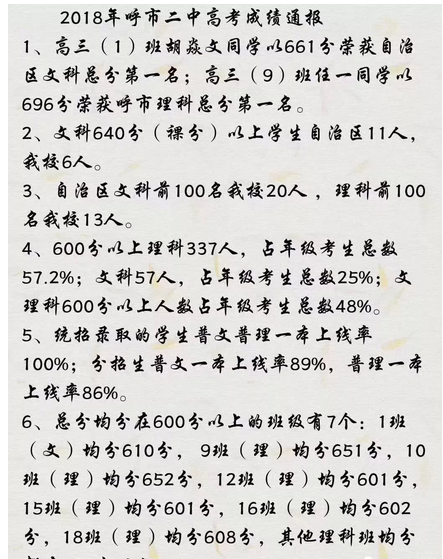 2018年呼市二中高考成绩通报
1、高三（1）班胡焱文同学以661分荣获自治
区文科总分第一名；高三（9）班任一同学以
696分荣获呼市理科总分第一名。
2、文科640分（裸分）以上学生自治区11人，
我校6人。
3、自治区文科前100名我校20人，理科前100
名我校13人。
4、600分以上理科337人，占年级考生总数
57.2%；文科57人，占年级考生总数25%；文
理科600分以上人数占年级考生总数48%。
5、统招录取的学生普文普理一本上线率
100%；分招生普文一本上线率89%，普理一本
上线率86%。
6、总分均分在600分以上的班级有7个：1班
（文）均分610分，9班（理）均分651分，10
班（理）均分652分，12班（理）均分601分，
15班（理）均分601分，16班（理）均分602
分，18班（理）均分608分，其他理科班均分